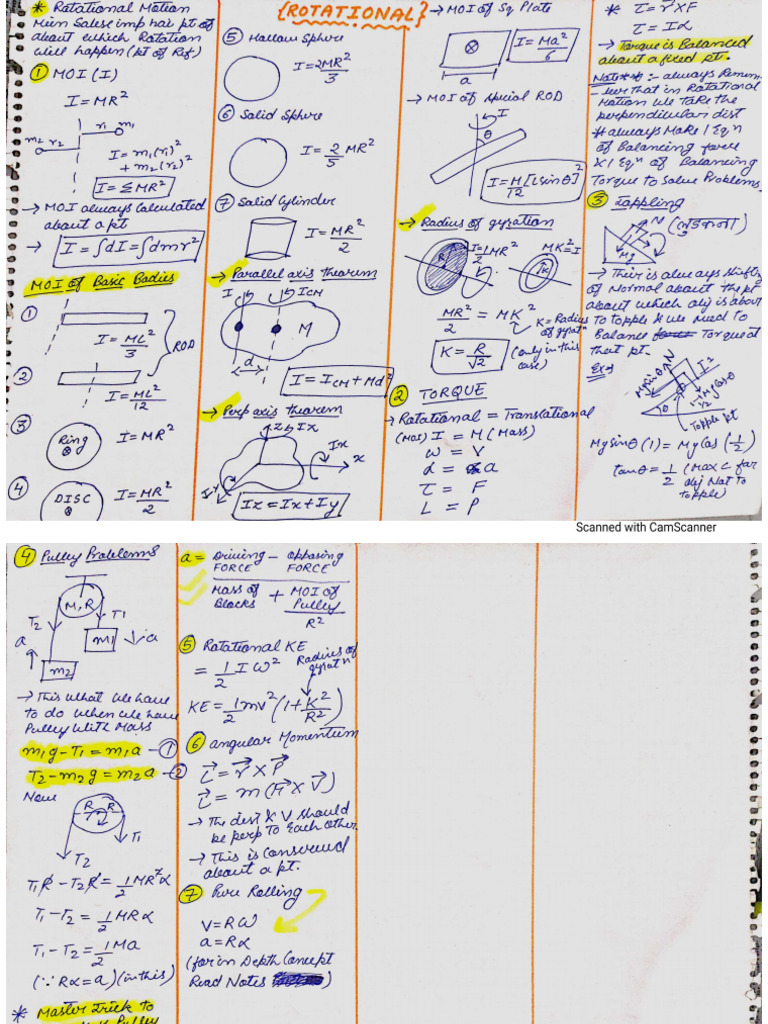 {ROTATIONAL}
* Rotational Motion
Mein Sabse imp hai pt of
about which Rotation
will happen (pt of Ref)
① MOI (I)
I = MR²
m₂ r₂ r₁ m₁
I = m₁(r₁)²
+ m₂(r₂)²
I = ΣMR²
→ MOI always Calculated
about a pt
→ I = ∫dI = ∫dmr²
MOI of Basic Bodies
①
I = ML²/3
ROD
②
I = ML²/12
③ Ring I = MR²
④ DISC I = MR²/2
⑤ Hallow Sphere
I = 2MR²/3
⑥ Solid Sphere
I = 2/5 MR²
⑦ Solid Cylinder
I = MR²/2
→ Parallel axis theorem
I I_CM
M
d
I = I_CM + Md²
→ Perp axis theorem
z Ix
Ix
x
Iy
Iz = Ix + Iy
→ MOI of Sq Plate
I = Ma²/6
a
→ MOI of special ROD
I
θ
I = M/12 [L sinθ]²
→ Radius of gyration
R I = 1/2 MR² MK² = I
K
MR²/2 = MK²
K = Radius
of gyratⁿ
K = R/√2 (only in this
case)
② TORQUE
→ Rotational = Translational
(MOI) I = M (Mass)
ω = V
α = a
τ = F
L = P
* τ = r × F
τ = Iα
→ Torque is Balanced
about a fixed pt.
Note** :- always Remem-
-ber that in Rotational
Motion we take the
perpendicular dist
# always Make 1 Eqⁿ
of Balancing force
& 1 Eqⁿ of Balancing
Torque to Solve Problems
③ Toppling
N
Mg
→ Their is always shifting
of Normal about the pt
about which obj is about
To topple & we need to
Balance Torque at
that pt.
Ex→
Mg sinθ N 1 2
Mg cosθ
1/2
θ
Topple pt
Mg sinθ (1) = Mg cos (1/2)
tanθ = 1/2 (Max L for
obj Not to
topple)
Scanned with CamScanner
④ Pulley Problems
M, R
T₂ T₁
a m₁ ↓a
m₂
→ This what we have
to do when we have
Pulley With Mass
m₁g - T₁ = m₁a —①
T₂ - m₂g = m₂a —②
Now
R R
T₁
T₂
T₁R - T₂R = 1/2 MR²α
T₁ - T₂ = 1/2 MRα
T₁ - T₂ = 1/2 Ma
(∵ Rα = a) (in this)
* Master Trick to
Pulley
a = DRIVING FORCE - OPPOSING FORCE
Mass of Blocks + MOI of Pulley / R²
⑤ Rotational KE
= 1/2 I ω² Radius of
gyratⁿ
KE = 1/2 mv² (1 + K²/R²)
⑥ angular Momentum
L = r × P
L = m(r × v)
→ The dist & V should
be perp To Each other.
→ This is Conserved
about a pt.
⑦ Pure Rolling
V = Rω
a = Rα
(for in Depth Concept
Read Notes )